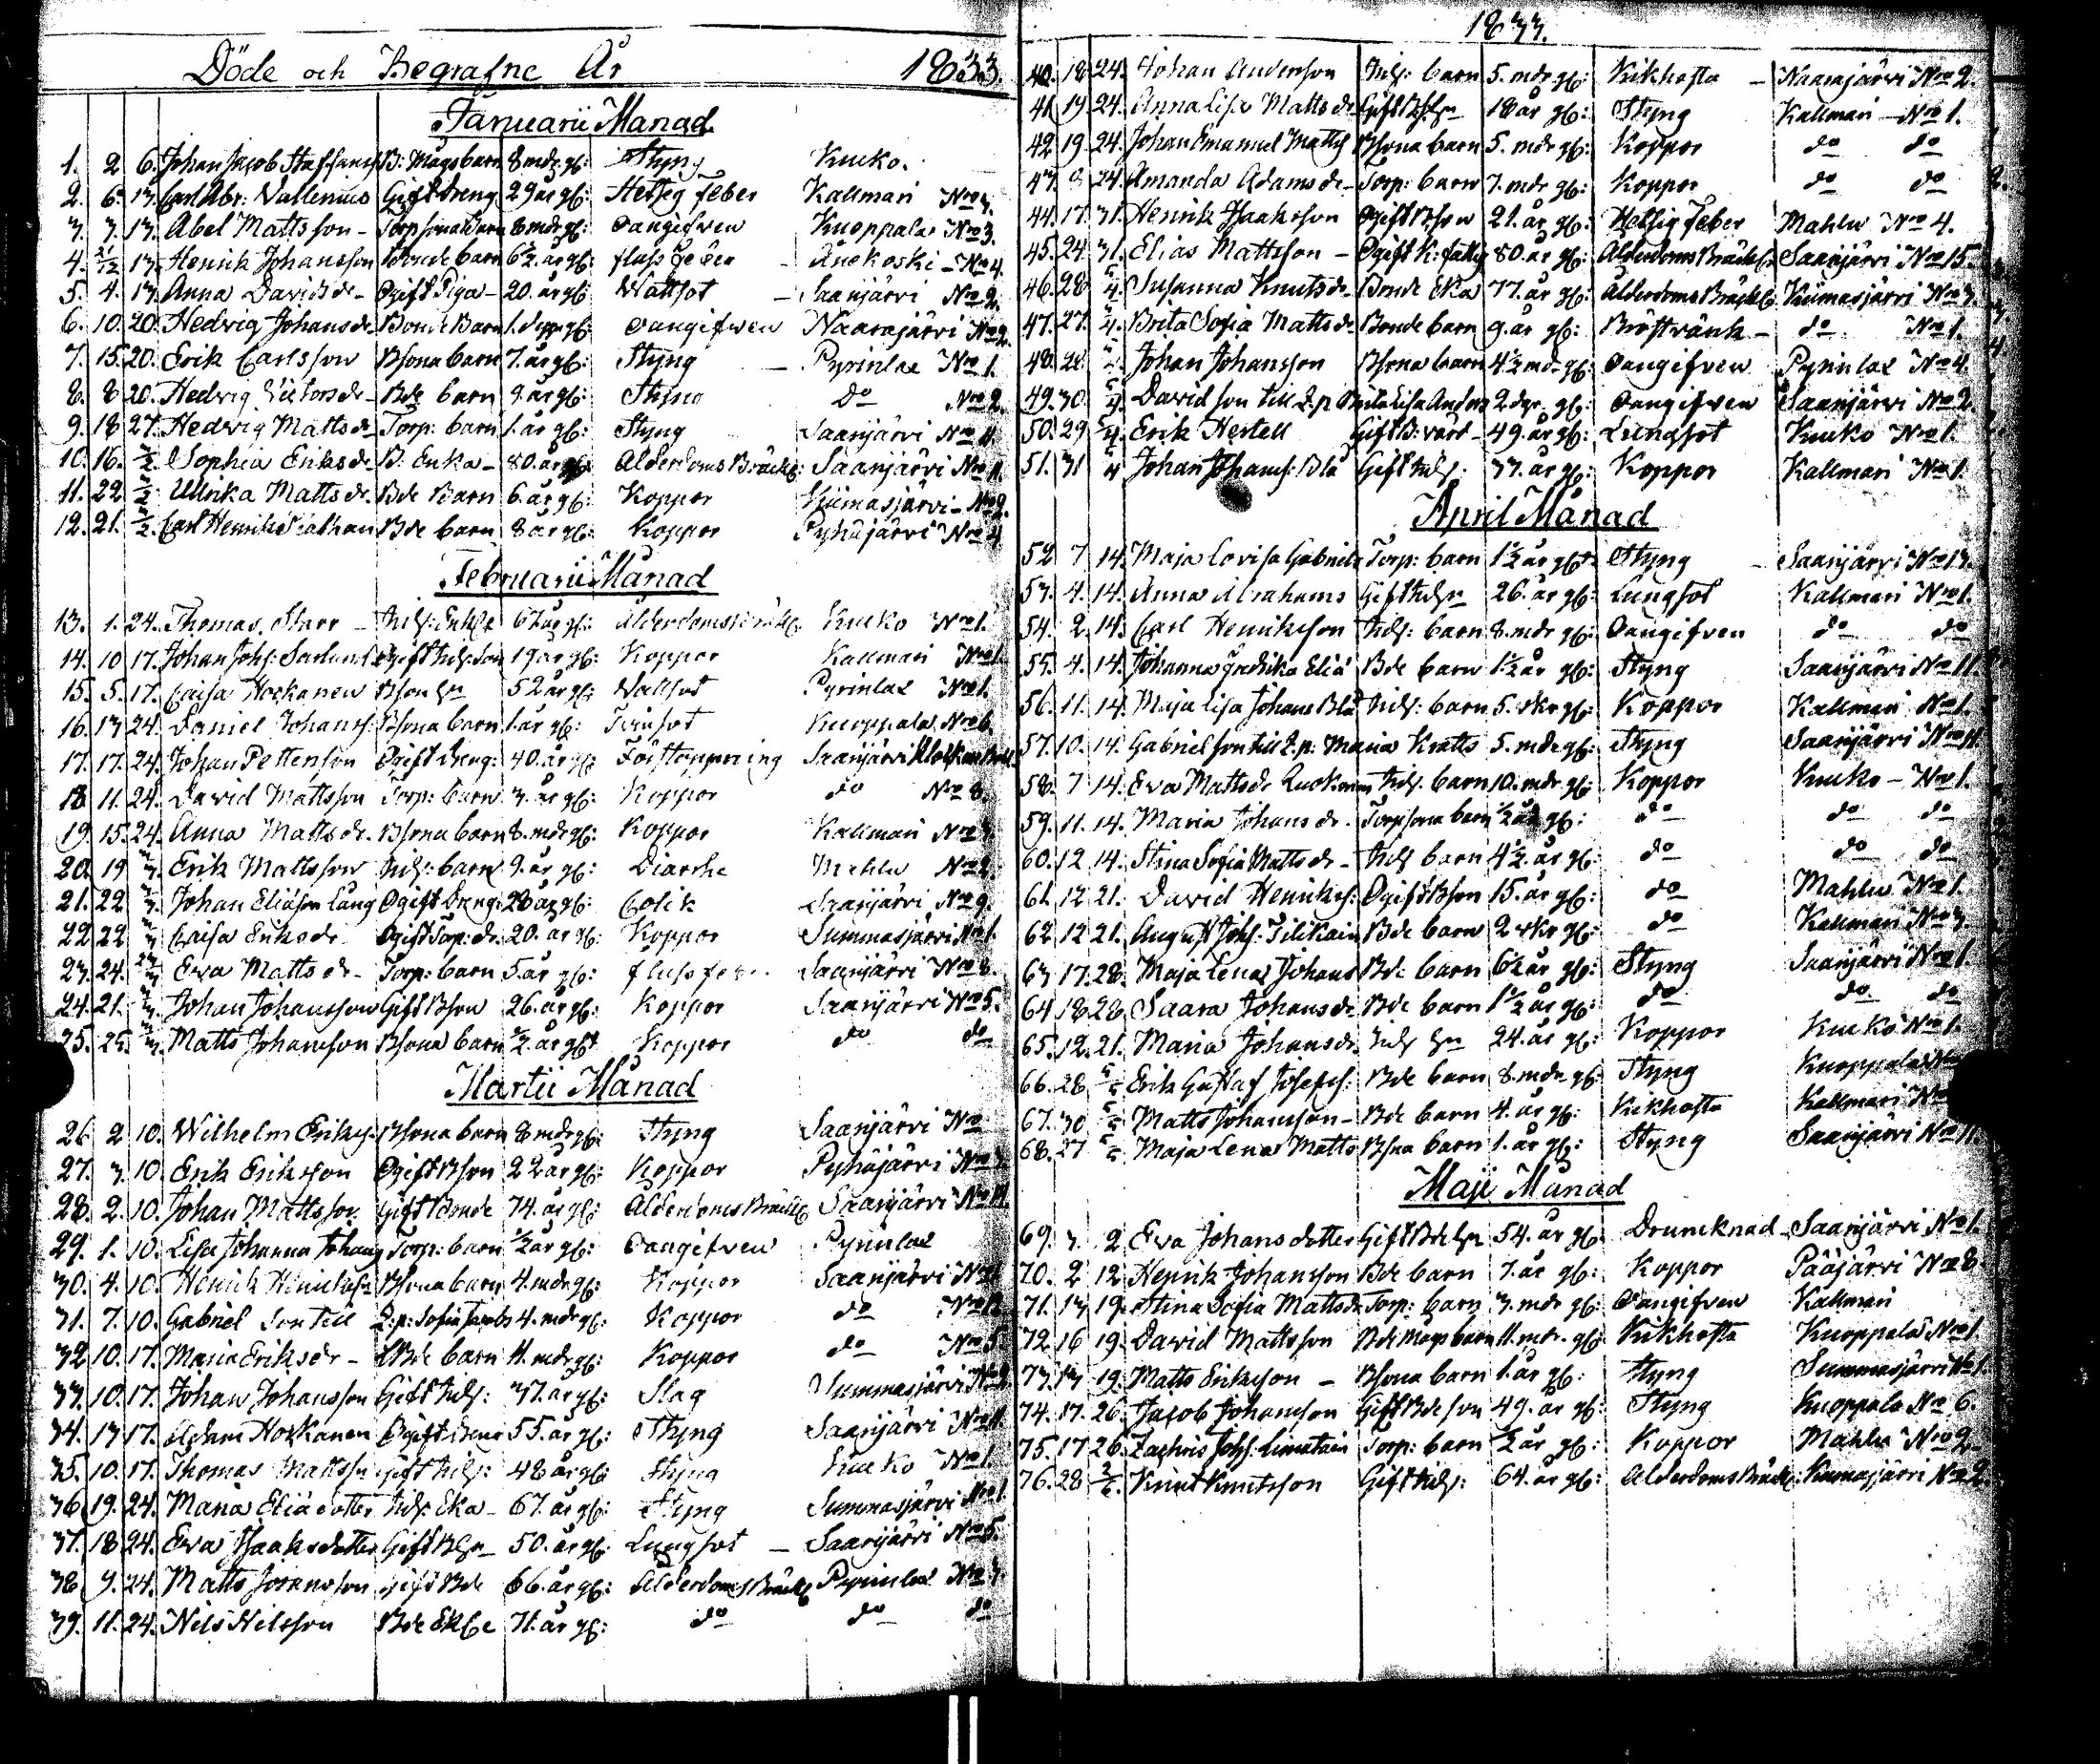 Döde och Begrafne År 1833.
Januarii Månad
1. 2 6. Johan Jacob Staffans B: Mågs barn 8 mdr gl: Styng Kuko.
2. 6. 13. Carl Abr: Vallenius Gift dreng 29 år gl: Hetsig feber Kallmari No 3.
3. 7. 13. Abel Mattsson - Torp sona barn 8 mdr gl: Oangifven Knoppala No 3.
4. 13. Henrik Johansson Bonde barn 6½ år gl: fluss feber - Änekoski - No 4.
5. 4. 13. Anna Davidsdr - Ogift Piga - 20. år gl: Wattsot - Saarijärvi No 2.
6. 10. 20. Hedvig Johansdr Bonde Barn 1. gl: Oangifven Naarajärvi No 2.
7. 15. 20. Erik Carlsson Bsona barn 7. år gl: Styng - Pyrinlax No 1.
8. 8 20. Hedvig Bde barn 9. år gl: Styng do No 2.
9. 18 27. Hedvig Mattsdr Torp: barn 1. år gl: Styng Saarijärvi No 11.
10. 16. 3/2. Sophia Eriksdr B: Enka - 80. år gl: Ålderdoms Bräckl: Saarijärvi No 11.
11. 22 3/2. Ullrika Mattsdr. Bde Barn 6. år gl: Koppor Kiimasjärvi - No 2.
12. 21. 3/2. Carl Henrik Bde barn 8 år gl: Koppor Pyhäjärvi No 4.
Februarii Månad
13. 1. 24. Thomas Starr - Inhs: Enkl 67 år gl: Ålderdomsbräckl. Kuko No 1.
14. 10 17. Johan Johs: Sarlund Ogift Inhs: Son 19 år gl: Koppor Kallmari No 1.
15. 5. 17. Caisa Hokkanen 52 år gl: Wattsot Pyrinlax No 1.
16. 13 24. Daniel Johans: Bsona barn 1. år gl: Tvinsot Knoppala No 6.
17. 17. 24. Johan Petterson Ogift dreng: 40. år gl: Förstoppning Saarijärvi
18 11. 24. David Mattsson Torp: barn 3. år gl: Koppor do No 8.
19. 15. 24. Anna Mattsdr. Bsona barn 8. mdr gl: Koppor Kallmari No
20. 19 Erik Mattsson Inhs: barn 9. år gl: Diarrhe Mahlu No 2.
21. 22 Johan Eliäson Lång Ogift Dreng: 28 år gl: Colik Saarijärvi No 9.
22 22 Caisa Eriksdr Ogift Torp: dr. 20. år gl: Koppor Summasjärvi No 1.
23. 24. Eva Mattsdr - Torp: barn 5. år gl: flussfeber Saarijärvi No 8.
24. 21. Johan Johansson Gift Bson 26. år gl: Koppor Saarijärvi No 5.
25. 25. Matts Johansson Bsona barn ½ år gl: Koppor do do
Martii Månad
26 2 10. Wilhelm Eriks: Bsona barn 8 mdr gl: Styng Saarijärvi No
27. 3. 10. Erik Eriksson Ogift Bson 22 år gl: Koppor Pyhäjärvi No
28. 2. 10. Johan Mattsson Gift Bonde 74. år gl: Ålderdoms Bräckl Saarijärvi No 11.
29. 1. 10. Lisa Johanna Johans Torp: barn ½ år gl: Oangifven Pyrinlax
30. 4. 10. Henrik Henriksson Bsona barn 4. mdr gl: Koppor Saarijärvi No
31. 7. 10. Gabriel Son till Q:p: Sofia Jacobs 4. mdr gl: Koppor do No 12.
32 10. 17. Maria Eriksdr - Bde barn 11. mdr gl: Koppor do No 5.
33. 10. 17. Johan Johansson Gift Inhs: 37. år gl: Slag Summasjärvi No 2.
34. 13 17. Adam Hokkanen Ogift 55. år gl: Styng Saarijärvi No 11.
35. 10. 17. Thomas Mattsson Gift Inhs: 48 år gl: Styng Kuko No 1.
36 19. 24. Maria Eliädotter Inhs: Eka - 67. år gl: Styng Summasjärvi No 1.
37. 18 24. Eva Isaksdotter Gift 50. år gl: Lungsot - Saarijärvi No 5.
38 9. 24. Matts Johansson Gift Bde 66. år gl: Ålderdoms Bräckl Pyrinlax No 3.
39. 11. 24. Nils Nilsson Bde Ekl 71. år gl: do do do
1833.
40. 18 24. Johan Anderson Inhs: barn 5. mdr gl: Kikhosta - Naarajärvi No 2.
41 19 24. Anna Lisa Mattsdr 18 år gl: Styng Kallmari - No 1.
42 19. 24. Johan Emanuel Matts Bsona barn 5. mdr gl: Koppor do do
43. 8 24. Amanda Adamsdr - Torp: barn 7. mdr gl: Koppor do do
44. 17. 31. Henrik Isaksson Ogift Bson 21. år gl: Hetsig feber Mahlu No 4.
45. 24 31. Elias Mattsson - Ogift K: fattig 80. år gl: Ålderdoms Bräckl. Saarijärvi No 15.
46. 28 Susanna Knutsdr - Bonde Eka 77. år gl: Ålderdoms Bräckl Kiimasjärvi No 3.
47. 27. Brita Sofia Mattsdr Bonde barn 9. år gl: Bröstvärk - do No 1.
48. 28 Johan Johansson Bsona barn 4½ mdr gl: Oangifven Pyrinlax No 4.
49. 30 David son till Q:p Brita Lisa Anders 2 dgr. gl: Oangifven Saarijärvi No 2.
50. 29 Erik Hertell Gift B: värd - 49. år gl: Lungsot Kuko No 1.
51. 31 Johan Johans: Blå Gift Inhs: 33. år gl: Koppor Kallmari No 1.
April Månad
52 7 14. Maja Lovisa Gabriels Torp: barn 1½ år gl: Styng - Saarijärvi No 13.
53. 4. 14. Anna Abrahams 26. år gl: Lungsot Kallmari No 1.
54. 2. 14. Carl Henriksson Inhs: barn 8. mdr gl: Oangifven do do
55. 4. 14. Johanna Fredrika Eliä Bde barn 1½ år gl: Styng Saarijärvi No 11.
56. 11. 14. Maja Lisa Johans Blå Inhs: barn 5. vkr gl: Koppor Kallmari No 1.
57. 10. 14. Gabriel son till Q:p: Maria Kratts 5. mdr gl: Styng Saarijärvi No 11.
58. 7 14. Eva Mattsdr Inhs. barn 10. mdr gl: Koppor Kuko - No 1.
59. 11. 14. Maria Johansdr. Torpsona barn ½ år gl: do do do
60. 12 14. Stina Sofia Mattsdr - Inhs barn 4½ år gl: do do do
61. 12 21. David Henriks: Ogift Bson 15. år gl: do Mahlu No 1.
62 12 21. August Johs: Tilikain Bde barn 2 vkr gl: do Kallmari No 3.
63 17. 28. Maja Lena Johans Bde barn 6½ år gl: Styng Saarijärvi No 1.
64 18 28. Saara Johansdr Bde barn 1½ år gl: do do do
65. 12. 21. Maria Johansdr. 24. år gl: Koppor Kuko No 1.
66. 28 Erik Gustaf Josefs: Bde barn 8. mdr gl: Styng Knoppala No
67. 30 Matts Johansson - Bde barn 4. år gl: Kikhosta Kallmari No
68. 27 Maja Lena Matts Bsna barn 1. år gl: Styng Saarijärvi No 11.
Maji Månad
69. 3. 2 Eva Johansdotter 54. år gl: Druncknad - Saarijärvi No 1.
70. 2 12 Henrik Johansson Bde barn 7. år gl: Koppor Pääjärvi No 8
71. 13 19. Stina Sofia Mattsdr Torp: barn 3. mdr gl: Oangifven Kallmari
72 16 19. David Mattsson Bde mågs barn 11. mdr. gl: Kikhosta Knoppala No 1.
73. 13 19. Matts Eriksson - Bsona barn 1. år gl: Styng Summasjärvi No 1.
74. 17. 26. Jacob Johansson Gift Bdeson 49. år gl: Styng Knoppala No 6.
75. 17 26. Zachris Johs: Torp: barn ½ år gl: Koppor Mahlu No 2.
76. 28 2/6. Knut Knutsson Gift Inhs: 64. år gl: Ålderdoms Bräckl: Kiimasjärvi No 2.